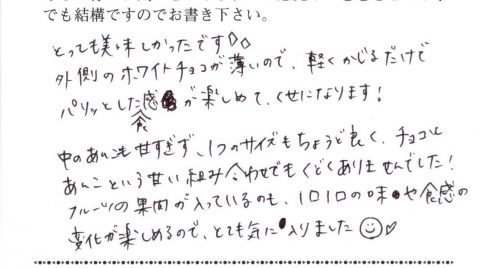 でも結構ですのでお書き下さい。
とっても美味しかったです◇◇
外側のホワイトチョコが薄いので、軽くかじるだけで
パリッとした食感が楽しめて、くせになります!
中のあんこも甘すぎず、1つのサイズもちょうど良く、チョコと
あんこという甘い組み合わせでもくどくありませんでした!
フルーツの果肉が入っているのも、1口1口の味や食感の
変化が楽しめるので、とても気に入りました☺♡